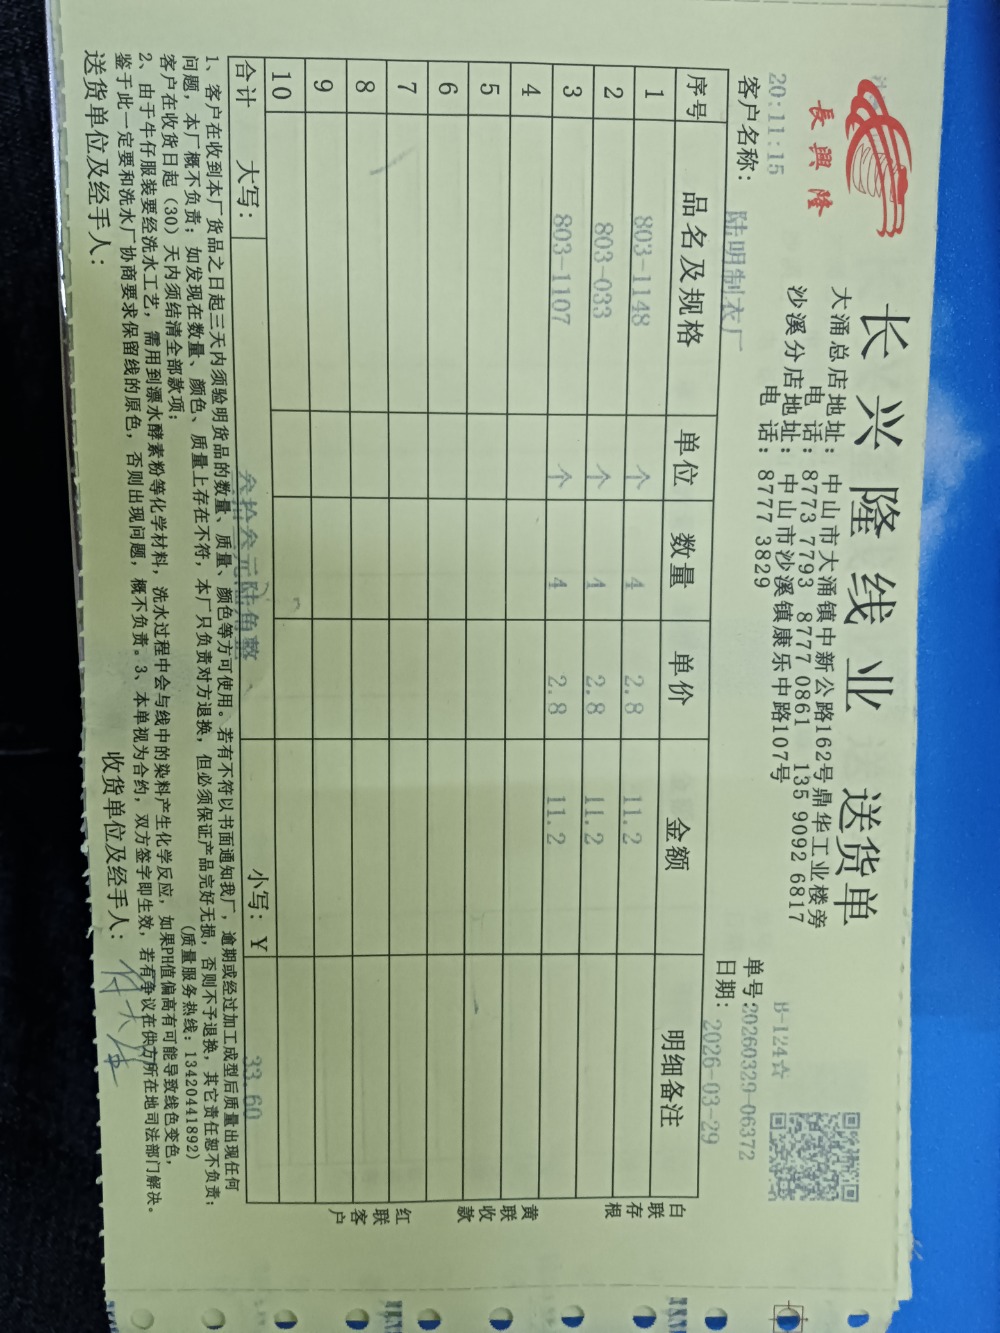 長興隆
长兴隆线业 送货单
大涌总店地址：中山市大涌镇中新公路162号鼎华工业楼旁
电 话：8773 7793 8777 0861 135 9092 6817
沙溪分店地址：中山市沙溪镇康乐中路107号
电 话：8777 3829
B-124☆
20:11:15
单号：20260329-06372
客户名称：陆明制衣厂
日期：2026-03-29
序号 品名及规格 单位 数量 单价 金额 明细备注
1 803-1148 个 4 2.8 11.2
2 803-033 个 4 2.8 11.2
3 803-1107 个 4 2.8 11.2
4
5
6
7
8
9
10
合计 大写：叁拾叁元陆角整 小写：¥ 33.60
白联存根
黄联收款
红联客户
1、客户在收到本厂货品之日起三天内须验明货品的数量、质量、颜色等方可使用。若有不符以书面通知我厂，逾期或经过加工成型后质量出现任何
问题，本厂概不负责；如发现在数量、颜色、质量上存在不符，本厂只负责对方退换，但必须保证产品完好无损，否则不予退换，其它责任恕不负责；
客户在收货日起（30）天内须结清全部款项； （质量服务热线：13420441892）
2、由于牛仔服装要经洗水工艺，需用到漂水酵素粉等化学材料，洗水过程中会与线中的染料产生化学反应，如果PH值偏高有可能导致线色变色，
鉴于此一定要和洗水厂协商要求保留线的原色，否则出现问题，概不负责。3、本单视为合约，双方签字即生效，若有争议在供方所在地司法部门解决。
送货单位及经手人： 收货单位及经手人：